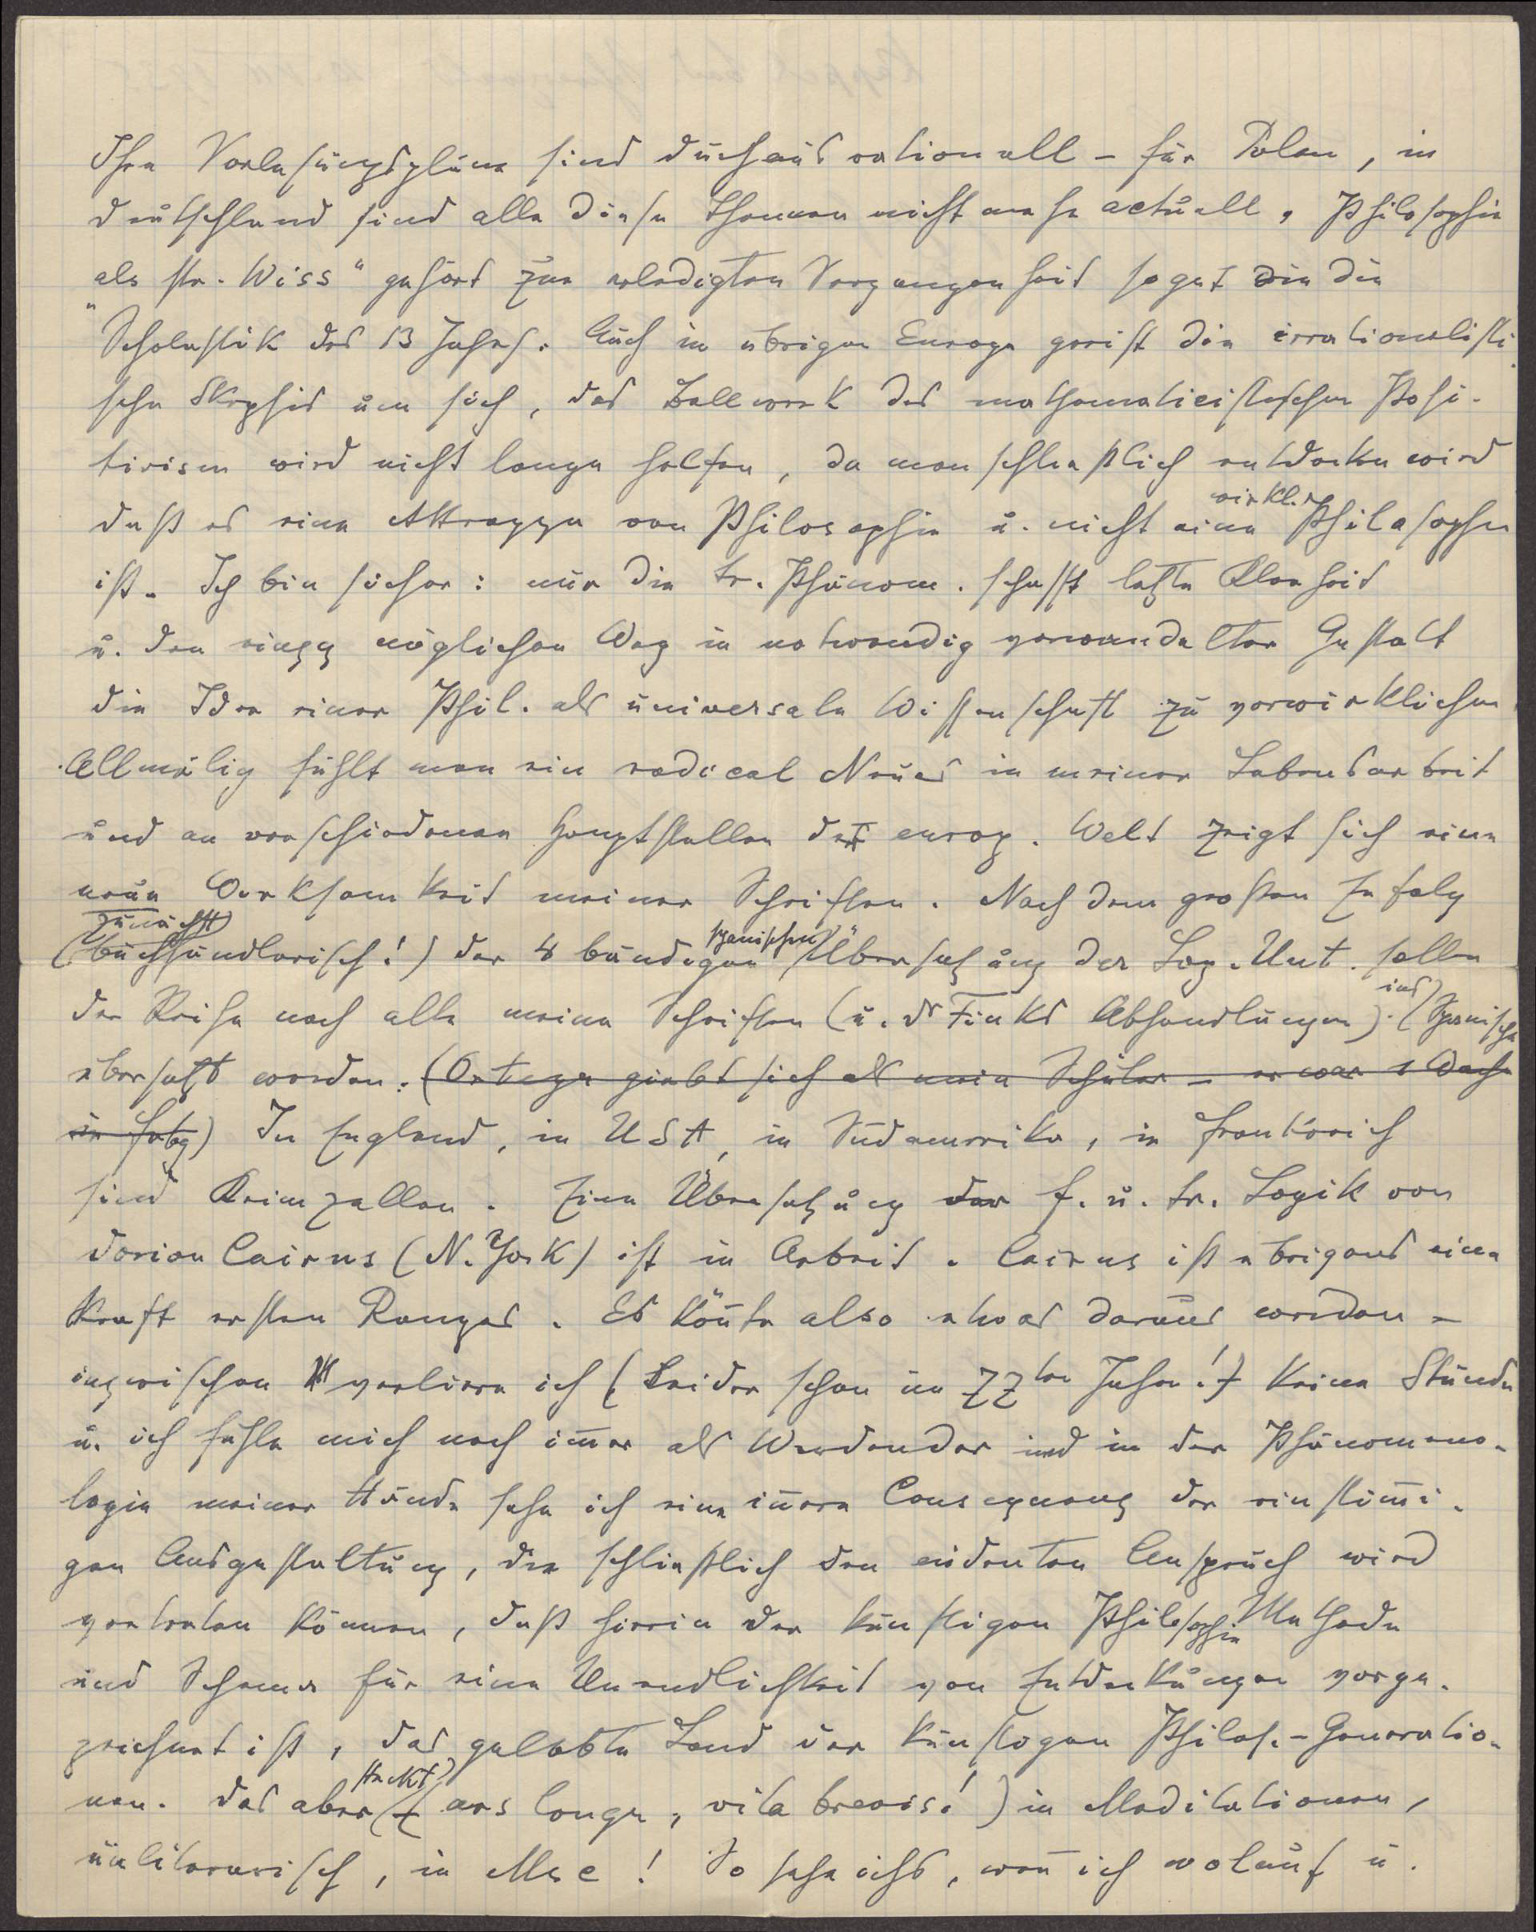 Ihre Vorlesungspläne sind durchaus rationell – für Polen, in
Deutschland sind alle diese Themen nicht mehr actuell. Philosophie
als str. Wiss" gehört zur erledigten Vergangenheit so gut wie die
"Scholastik des 13 Jahrh. Auch im übrigen Europa greift die irrationalisti
sche Skepsis um sich, das Bollwerk des mathematicistischen Posi-
tivism wird nicht lange helfen, da man schließlich entdecken wird
daß es eine Attrappe von Philosophie u. nicht eine wirkl. Philosophie
ist. Ich bin sicher: nur die tr. Phänom. schafft letzte Klarheit
u. den einzg möglichen Weg in notwendig verwandelter Gestalt
die Idee einer Phil. als universale Wissenschaft zu verwirklichen.
Allmälig fühlt man ein radical Neues in meiner Lebensarbeit
und an verschiedenen Hauptstellen der europ. Welt zeigt sich eine
neue Wirksamkeit meiner Schriften. Nach dem großen Erfolg
(zunächst buchhändlerisch!) der 4 bändigen spanischen Übersetzung der Log. Unt. sollen
der Reihe nach alle meine Schriften (u. Dr Finks Abhandlungen) ins Spanische
übersetzt werden. (Ortega giebt sich als mein Schüler – er war 1 Woche
in Frbg) In England, in USA, in Südamerika, in Frankreich
sind Keimzellen. Eine Übersetzung der f. u. tr. Logik von
Dorion Cairns (N. York) ist in Arbeit. Cairns ist übrigens eine
Kraft ersten Ranges. Es könte also etwas daraus werden –
inzwischen verliere ich (leider schon im 77ten Jahre!) keine Stunde
u. ich fühle mich noch imer als Werdender und in der Phänomeno-
logie meiner Hände sehe ich eine inere Consequenz der einstimi-
gen Ausgestaltung, die schließlich den evidenten Anspruch wird
vertreten können, daß hierin der künftigen Philosophie Methode
und Schema für eine Unendlichkeit von Entdeckungen vorge-
zeichnet ist, das gelobte Land der künftigen Philos.-Generatio-
nen. Das aber steckt (ars longa, vita brevis!) in Meditationen,
unliterarisch, in Msc! So sehe ichs, wen ich wolauf u.